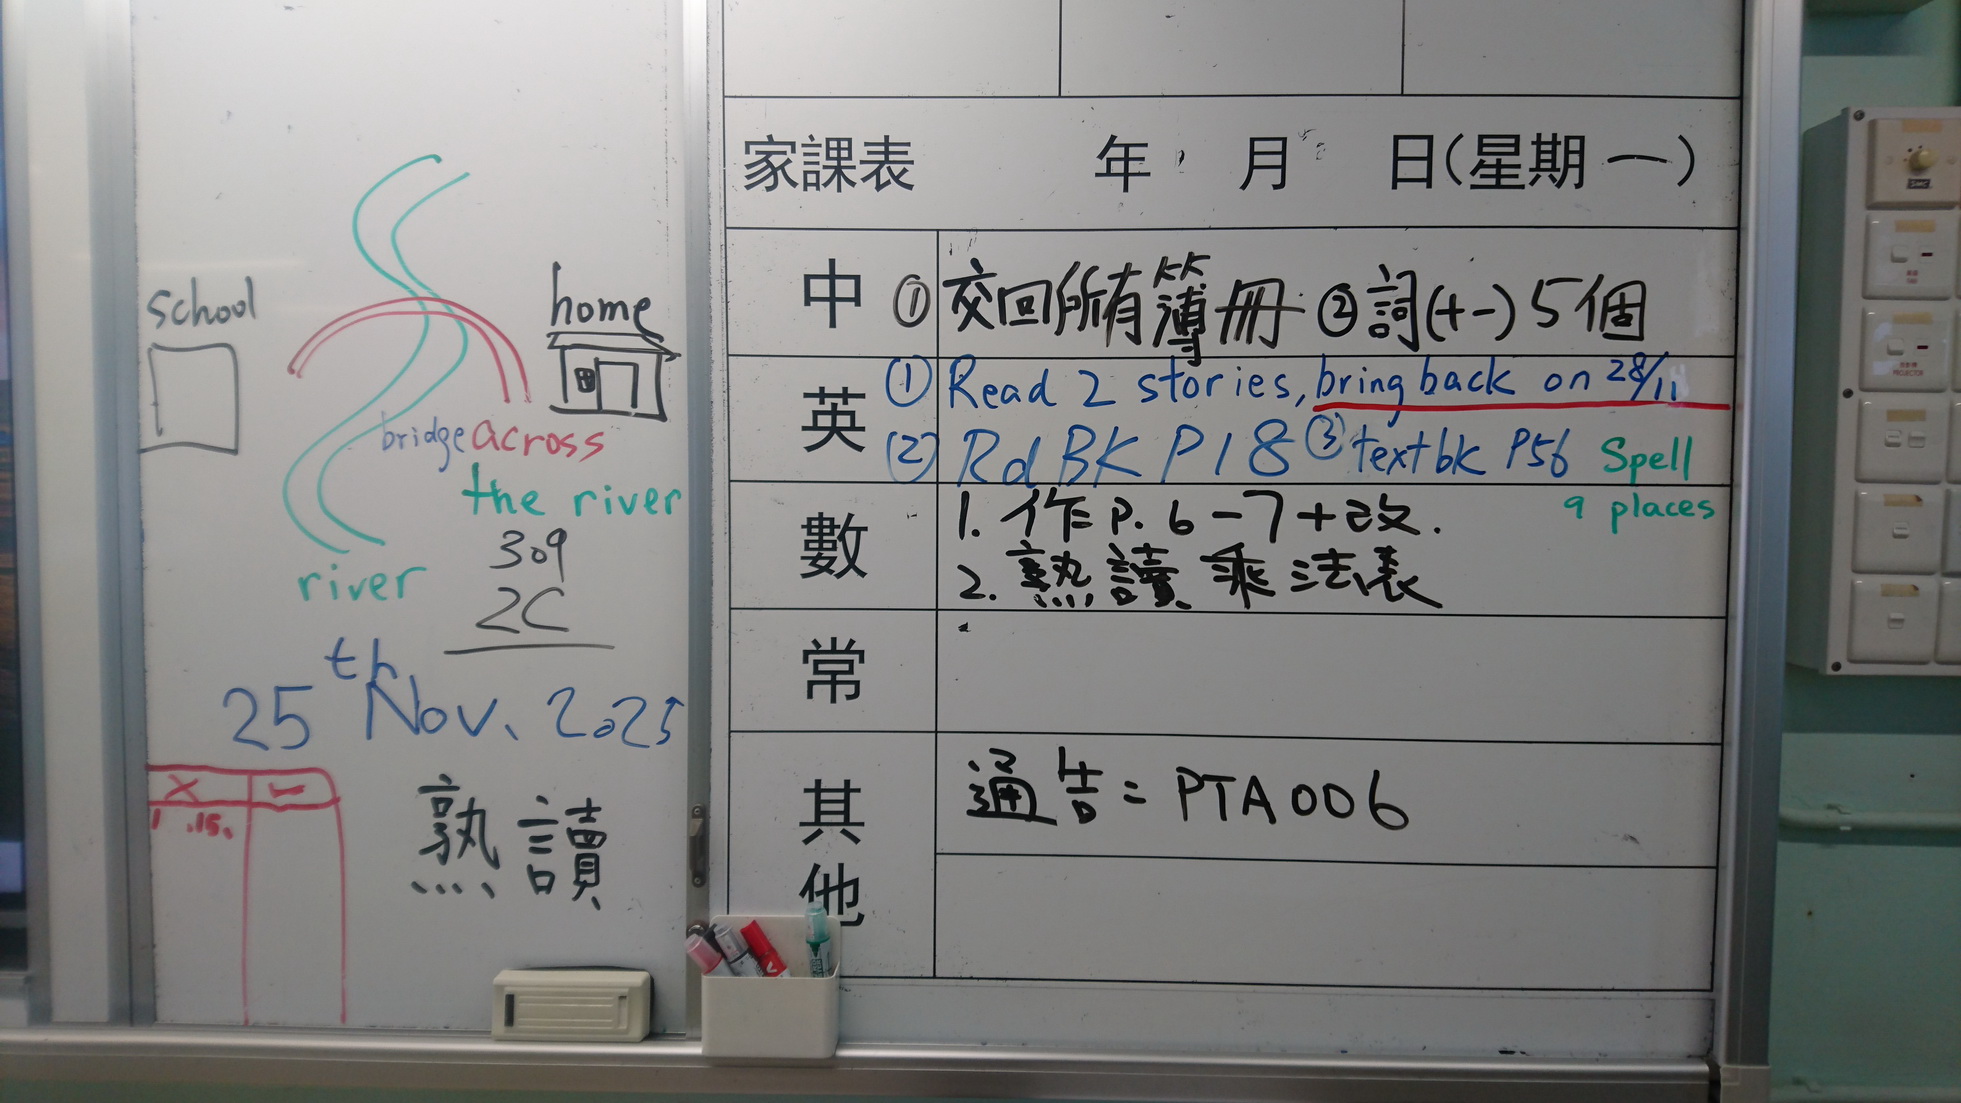 school
home
bridge across
the river
river
309
2C
25th Nov. 2025
X
1 .15.
熟讀
家課表 年 月 日(星期一)
中 ① 交回所有簿冊 ② 詞(十一) 5個
英 (1) Read 2 stories, bring back on 28/11
(2) Rd BK P18 ③ textbk P56 Spell
9 places
數 1. 作P. 6-7+改.
2. 熟讀乘法表
常
其他 通告: PTA006